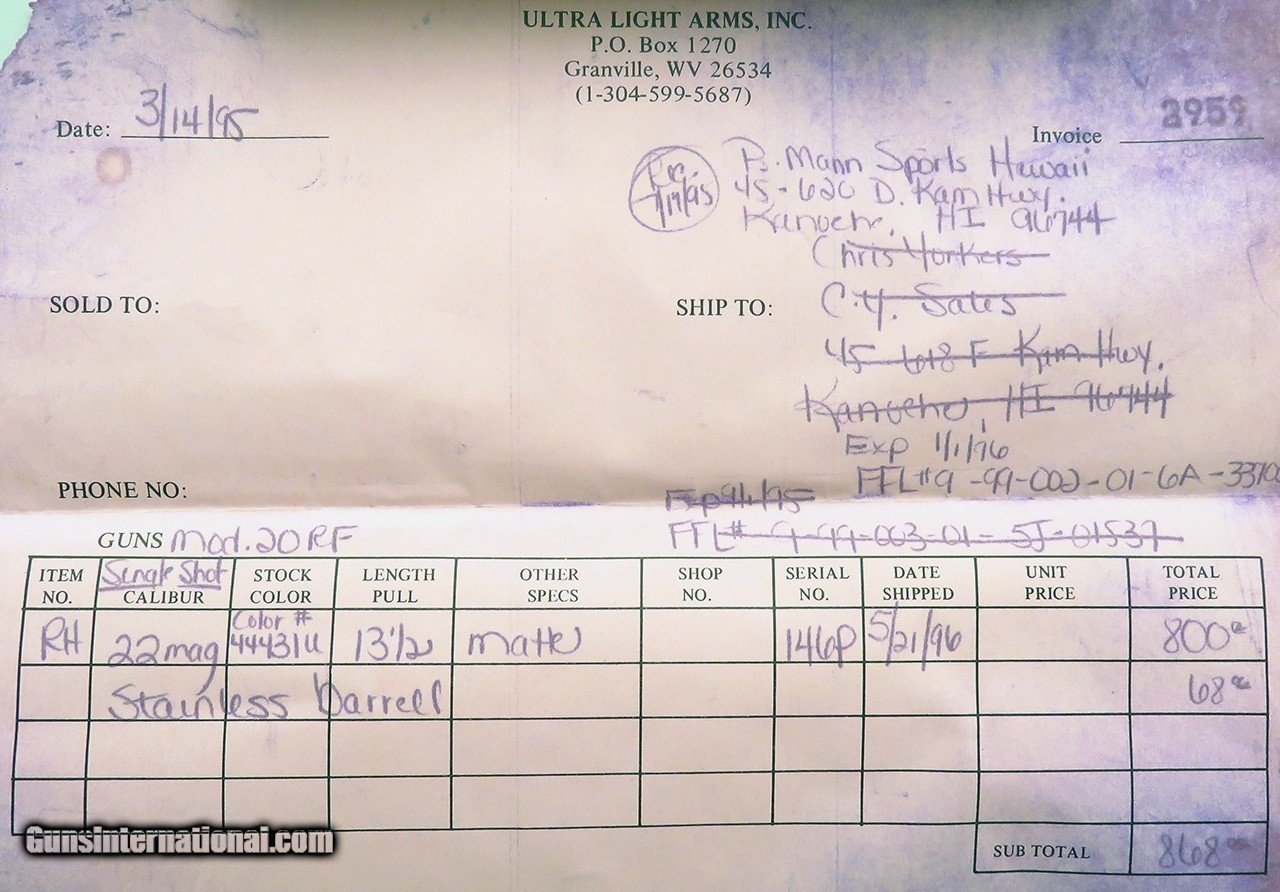 ULTRA LIGHT ARMS, INC.
P.O. Box 1270
Granville, WV 26534
(1-304-599-5687)
Date: 3/14/95
Invoice 2959
P. Mann Sports Hawaii
45-620 D. Kam Hwy.
HI 96744
Chris Yorkers
SOLD TO:
SHIP TO: C.Y. Sales
45-618 F Kam Hwy.
HI 96744
Exp 1/1/96
PHONE NO:
FFL# 9-99-002-01-6A-3370
FFL# 9-99-003-01-5J-01537
GUNS Mod. 20RF
ITEM NO. Single Shot CALIBUR STOCK COLOR LENGTH PULL OTHER SPECS SHOP NO. SERIAL NO. DATE SHIPPED UNIT PRICE TOTAL PRICE
RH 22mag Color # 44431U 13 1/2 matte 146P 5/21/96 800
Stainless barrell 68
SUB TOTAL 868
GunsInternational.com